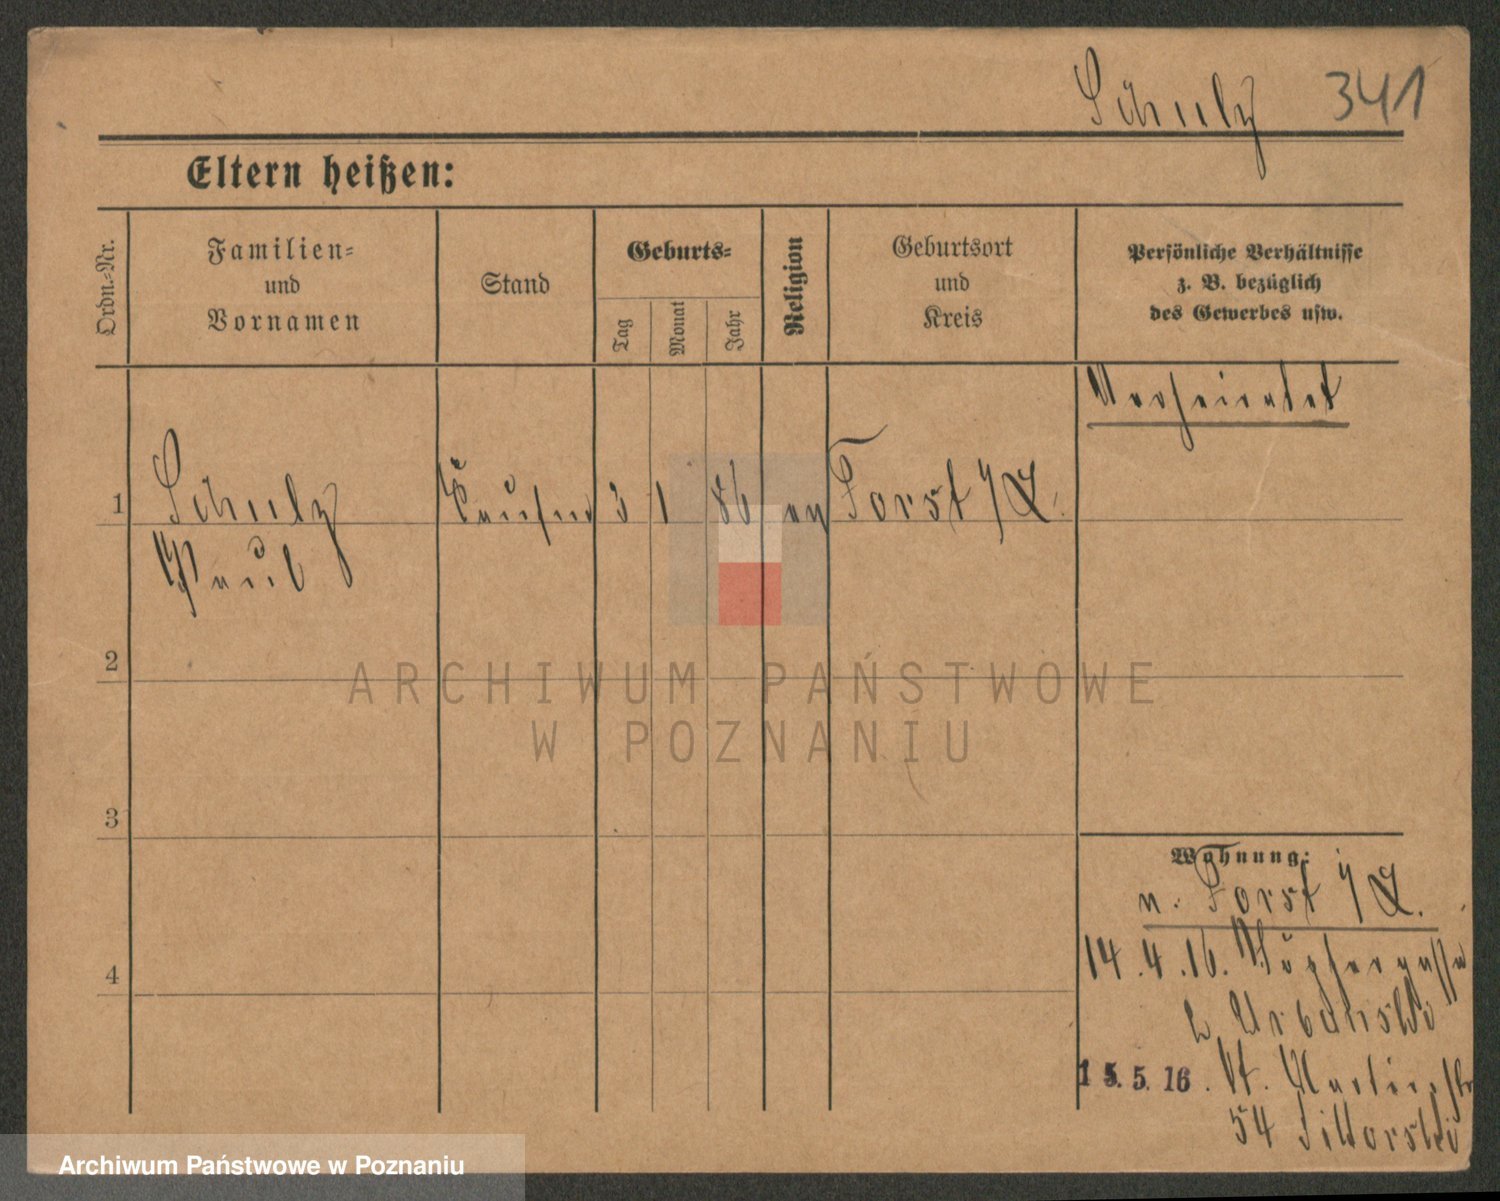 Schulz 341
Eltern heißen:
Ordn.=Nr.
Familien=
und
Vornamen
Stand
Geburts=
Tag
Monat
Jahr
Religion
Geburtsort
und
Kreis
Persönliche Verhältnisse
z. B. bezüglich
des Gewerbes usw.
Verheiratet
1 Schulz Kaufm 3 1 86 ev Forst
Paul
2
3
4
Wohnung:
v. Forst
14.4.16.
2 Urbanski
15.5.16. St. Martinstr
54 Sikorski
ARCHIWUM PAŃSTWOWE
W POZNANIU
Archiwum Państwowe w Poznaniu